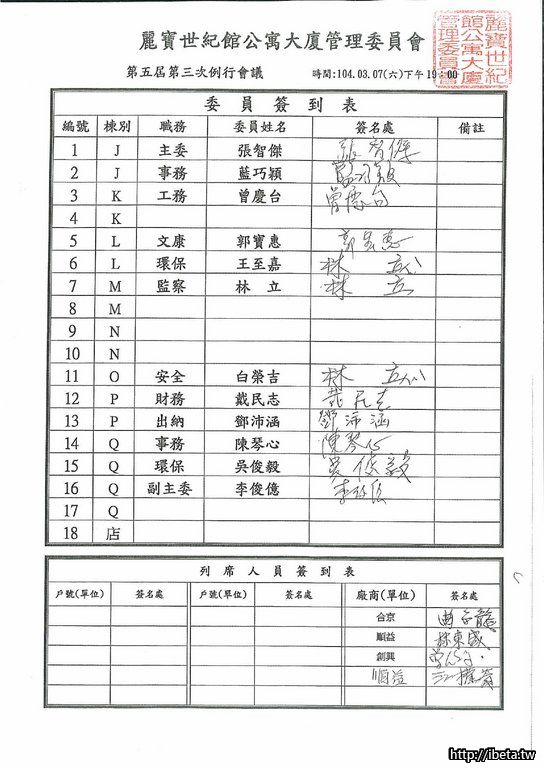 麗寶世紀館公寓大廈管理委員會
麗寶世紀館公寓大廈管理委員會
第五屆第三次例行會議 時間:104.03.07(六)下午19:00
委員簽到表
編號 棟別 職務 委員姓名 簽名處 備註
1 J 主委 張智傑 張智傑
2 J 事務 藍巧穎 藍巧穎
3 K 工務 曾慶台 曾慶台
4 K
5 L 文康 郭寶惠 郭寶惠
6 L 環保 王至嘉 林立代
7 M 監察 林立 林立
8 M
9 N
10 N
11 O 安全 白榮吉 林立代
12 P 財務 戴民志 戴民志
13 P 出納 鄧沛涵 鄧沛涵
14 Q 事務 陳琴心 陳琴心
15 Q 環保 吳俊毅 吳俊毅
16 Q 副主委 李俊億 李俊億
17 Q
18 店
列席人員簽到表
戶號(單位) 簽名處 戶號(單位) 簽名處 廠商(單位) 簽名處
合京
順益 林東盛
創興
順益
http://ibeta.tw